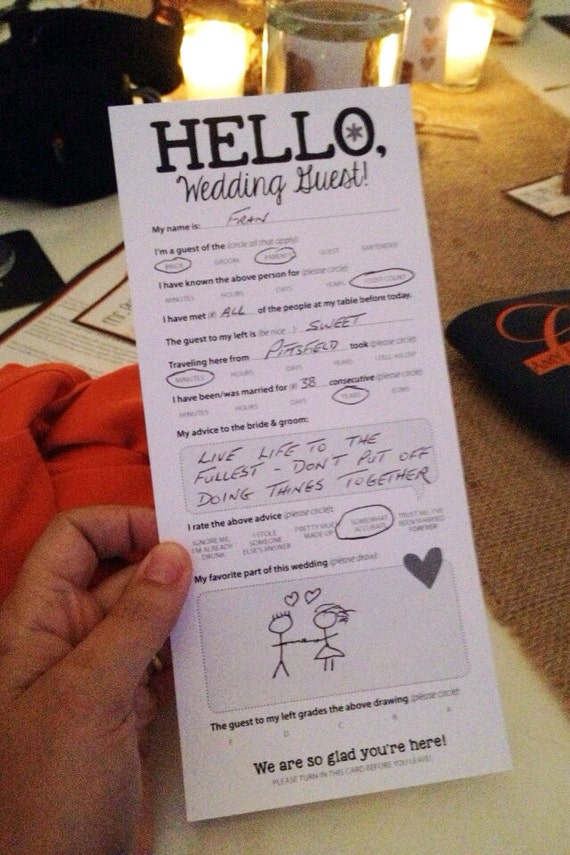 HELLO,
Wedding Guest!
My name is: FRAN
I'm a guest of the (circle all that apply):
BRIDE GROOM PARENTS GUEST BARTENDER
I have known the above person for (please circle):
MINUTES HOURS DAYS YEARS
I have met (#) ALL of the people at my table before today.
The guest to my left is (be nice...) SWEET
Traveling here from PITTSFIELD took (please circle):
MINUTES HOURS DAYS YEARS I FELL ASLEEP
I have been/was married for (#) 38 consecutive (please circle):
MINUTES HOURS DAYS YEARS EONS
My advice to the bride & groom:
LIVE LIFE TO THE
FULLEST - DON'T PUT OFF
DOING THINGS TOGETHER
I rate the above advice (please circle):
IGNORE ME, I STOLE PRETTY MUCH SOMEWHAT TRUST ME, I'VE
I'M ALREADY SOMEONE MADE UP ACCURATE BEEN MARRIED
DRUNK ELSE'S ANSWER FOREVER
My favorite part of this wedding (please draw):
The guest to my left grades the above drawing (please circle):
F D C B A
We are so glad you're here!
PLEASE TURN IN THIS CARD BEFORE YOU LEAVE!